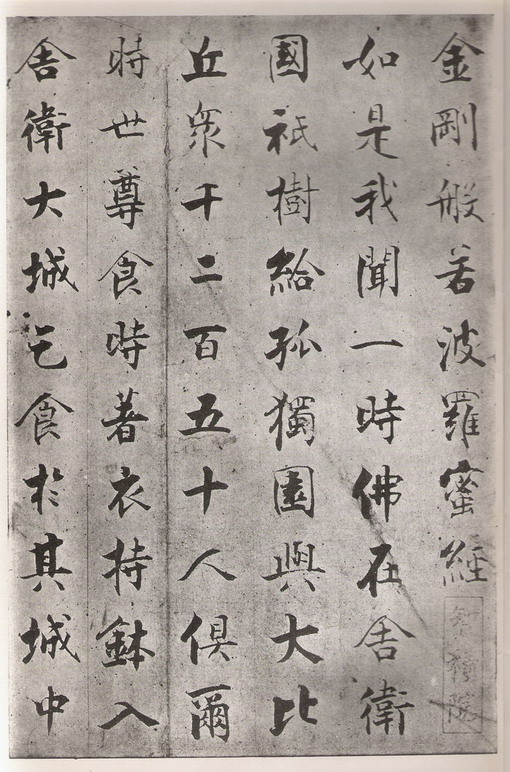 金剛般若波羅蜜經
智積院
如是我聞一時佛在舍衛
國祇樹給孤獨園與大比
丘衆千二百五十人俱爾
時世尊食時著衣持鉢入
舍衛大城乞食於其城中